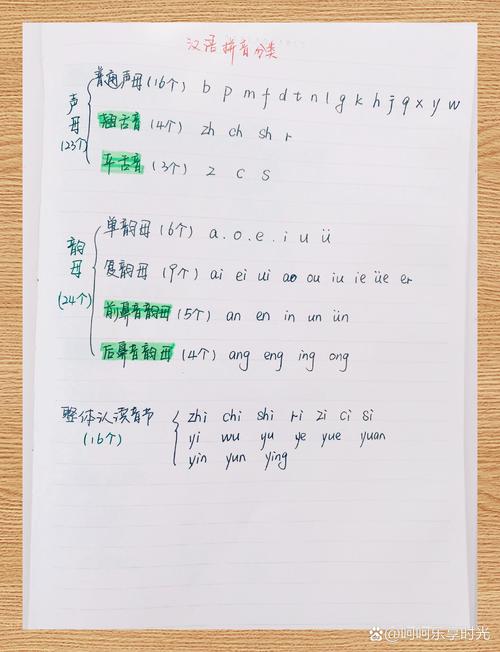 汉语拼音分类
声母(23个)
普通声母(16个) b p m f d t n l g k h j q x y w
翘舌音(4个) zh ch sh r
平舌音(3个) z c s
韵母(24个)
单韵母(6个) a.o.e.i u ü
复韵母(9个) ai ei ui ao ou iu ie üe er
前鼻音韵母(5个) an en in un ün
后鼻音韵母(4个) ang eng ing ong
整体认读音节(16个)
zhi chi shi ri zi ci si
yi wu yu ye yue yuan
yin yun ying
百家号@呵呵乐享时光